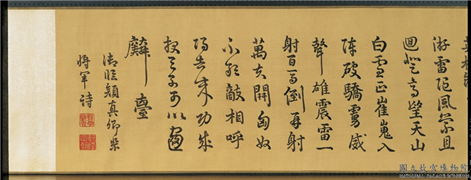 游電隨風縈且
迴登高望天山
白雲正崔嵬入
陣破驕虜威
聲雄震雷一
射百馬倒再射
萬夫開匈奴
不敢敵相呼
歸去來功成
報天子可以畫
麟臺
御臨顏真卿裴
將軍詩
國立故宮博物院